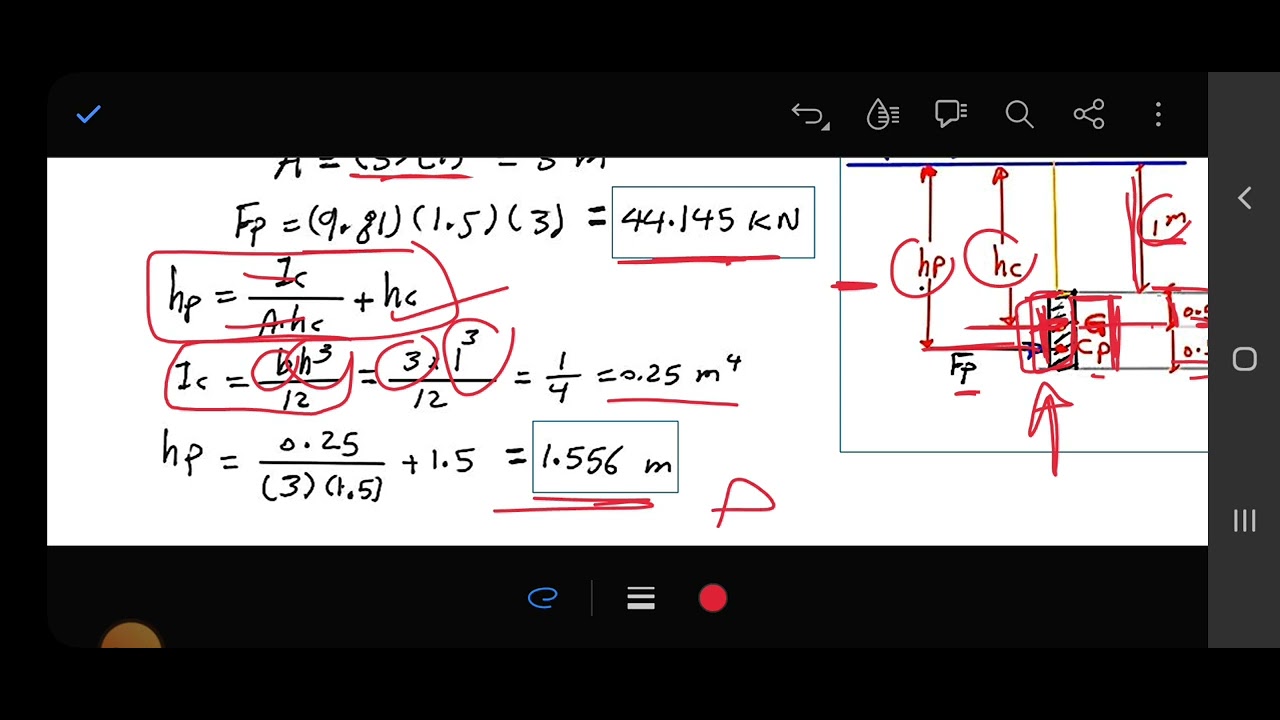 A = (3)(1) = 3 m
Fp = (9.81)(1.5)(3) = 44.145 KN
hp = Ic / A.hc + hc
Ic = bh³ / 12 = 3x1³ / 12 = 1/4 = 0.25 m⁴
hp = 0.25 / (3)(1.5) + 1.5 = 1.556 m
1m
hp hc
G
cp
Fp